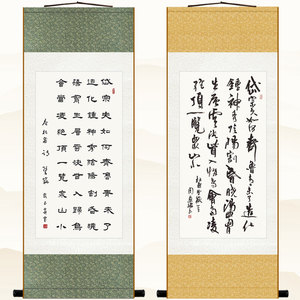 岱宗夫如何齊魯青未了
造化鍾神秀陰陽割昏曉
蕩胸生層雲決眥入歸鳥
會當凌絕頂一覽衆山小
杜甫詩 望嶽
岱宗夫如何齊魯青未了造化
鍾神秀陰陽割昏曉蕩胸
生層雲決眥入歸鳥會當凌
絕頂一覽衆山小